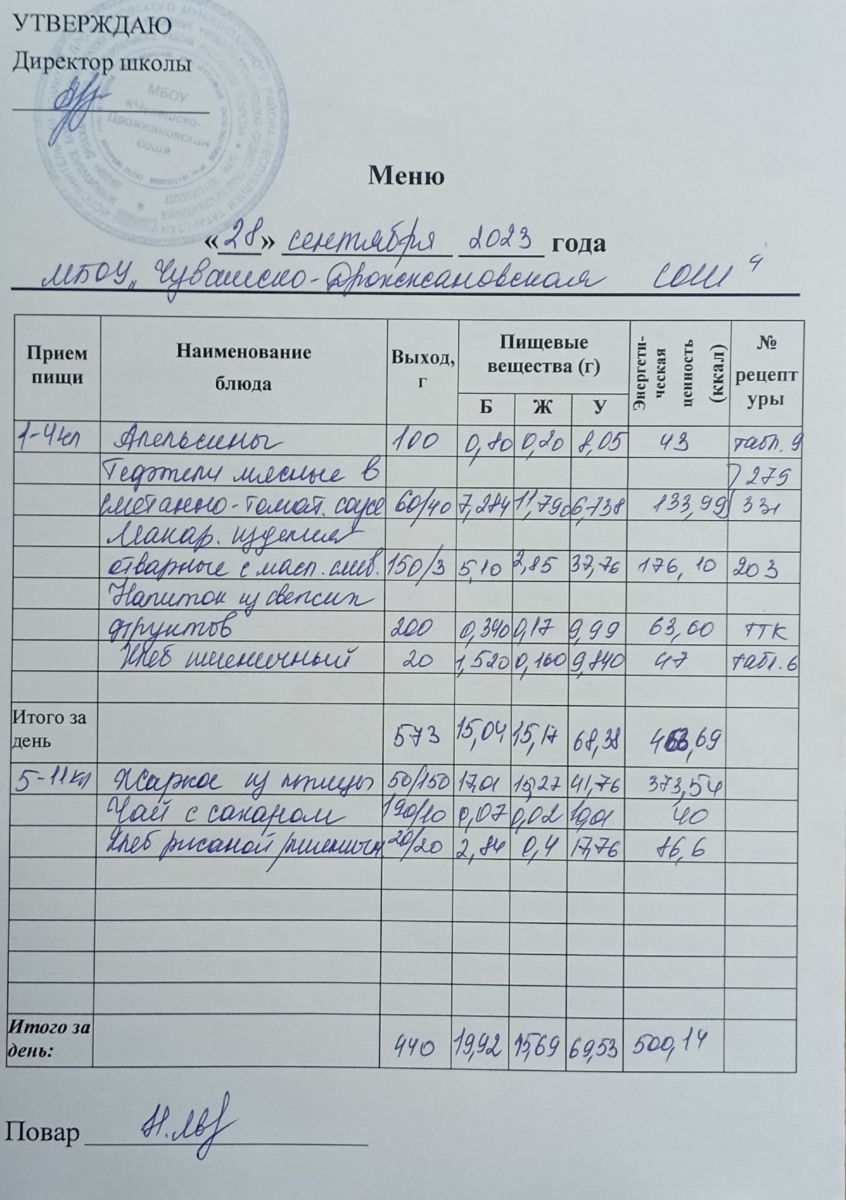 УТВЕРЖДАЮ
Директор школы
МБОУ
«Чувашско-
Дрожжановская
СОШ»
Меню
«28» сентября 2023 года
МБОУ „Чувашско-Дрожжановская СОШ"
Прием пищи Наименование блюда Выход, г Пищевые вещества (г) Энергетическая ценность (ккал) № рецептуры
Б Ж У
1-4кл Апельсины 100 0,80 0,20 8,05 43 табл. 9
Тефтели мясные в 279
сметанно-томат. соусе 60/40 7,284 11,790 6,738 133,99 331
Макар. изделия
отварные с масл. слив. 150/3 5,10 2,85 37,76 176,10 203
Напиток из свежих
фруктов 200 0,340 0,17 9,99 63,60 ТТК
Хлеб пшеничный 20 1,520 0,160 9,840 47 табл. 6
Итого за день 573 15,04 15,17 68,38 463,69
5-11кл Жаркое из птицы 50/150 17,01 15,27 41,76 373,54
Чай с сахаром 190/10 0,07 0,02 10,01 40
Хлеб ржаной/пшеничн. 20/20 2,84 0,4 17,76 86,6
Итого за день: 440 19,92 15,69 69,53 500,14
Повар